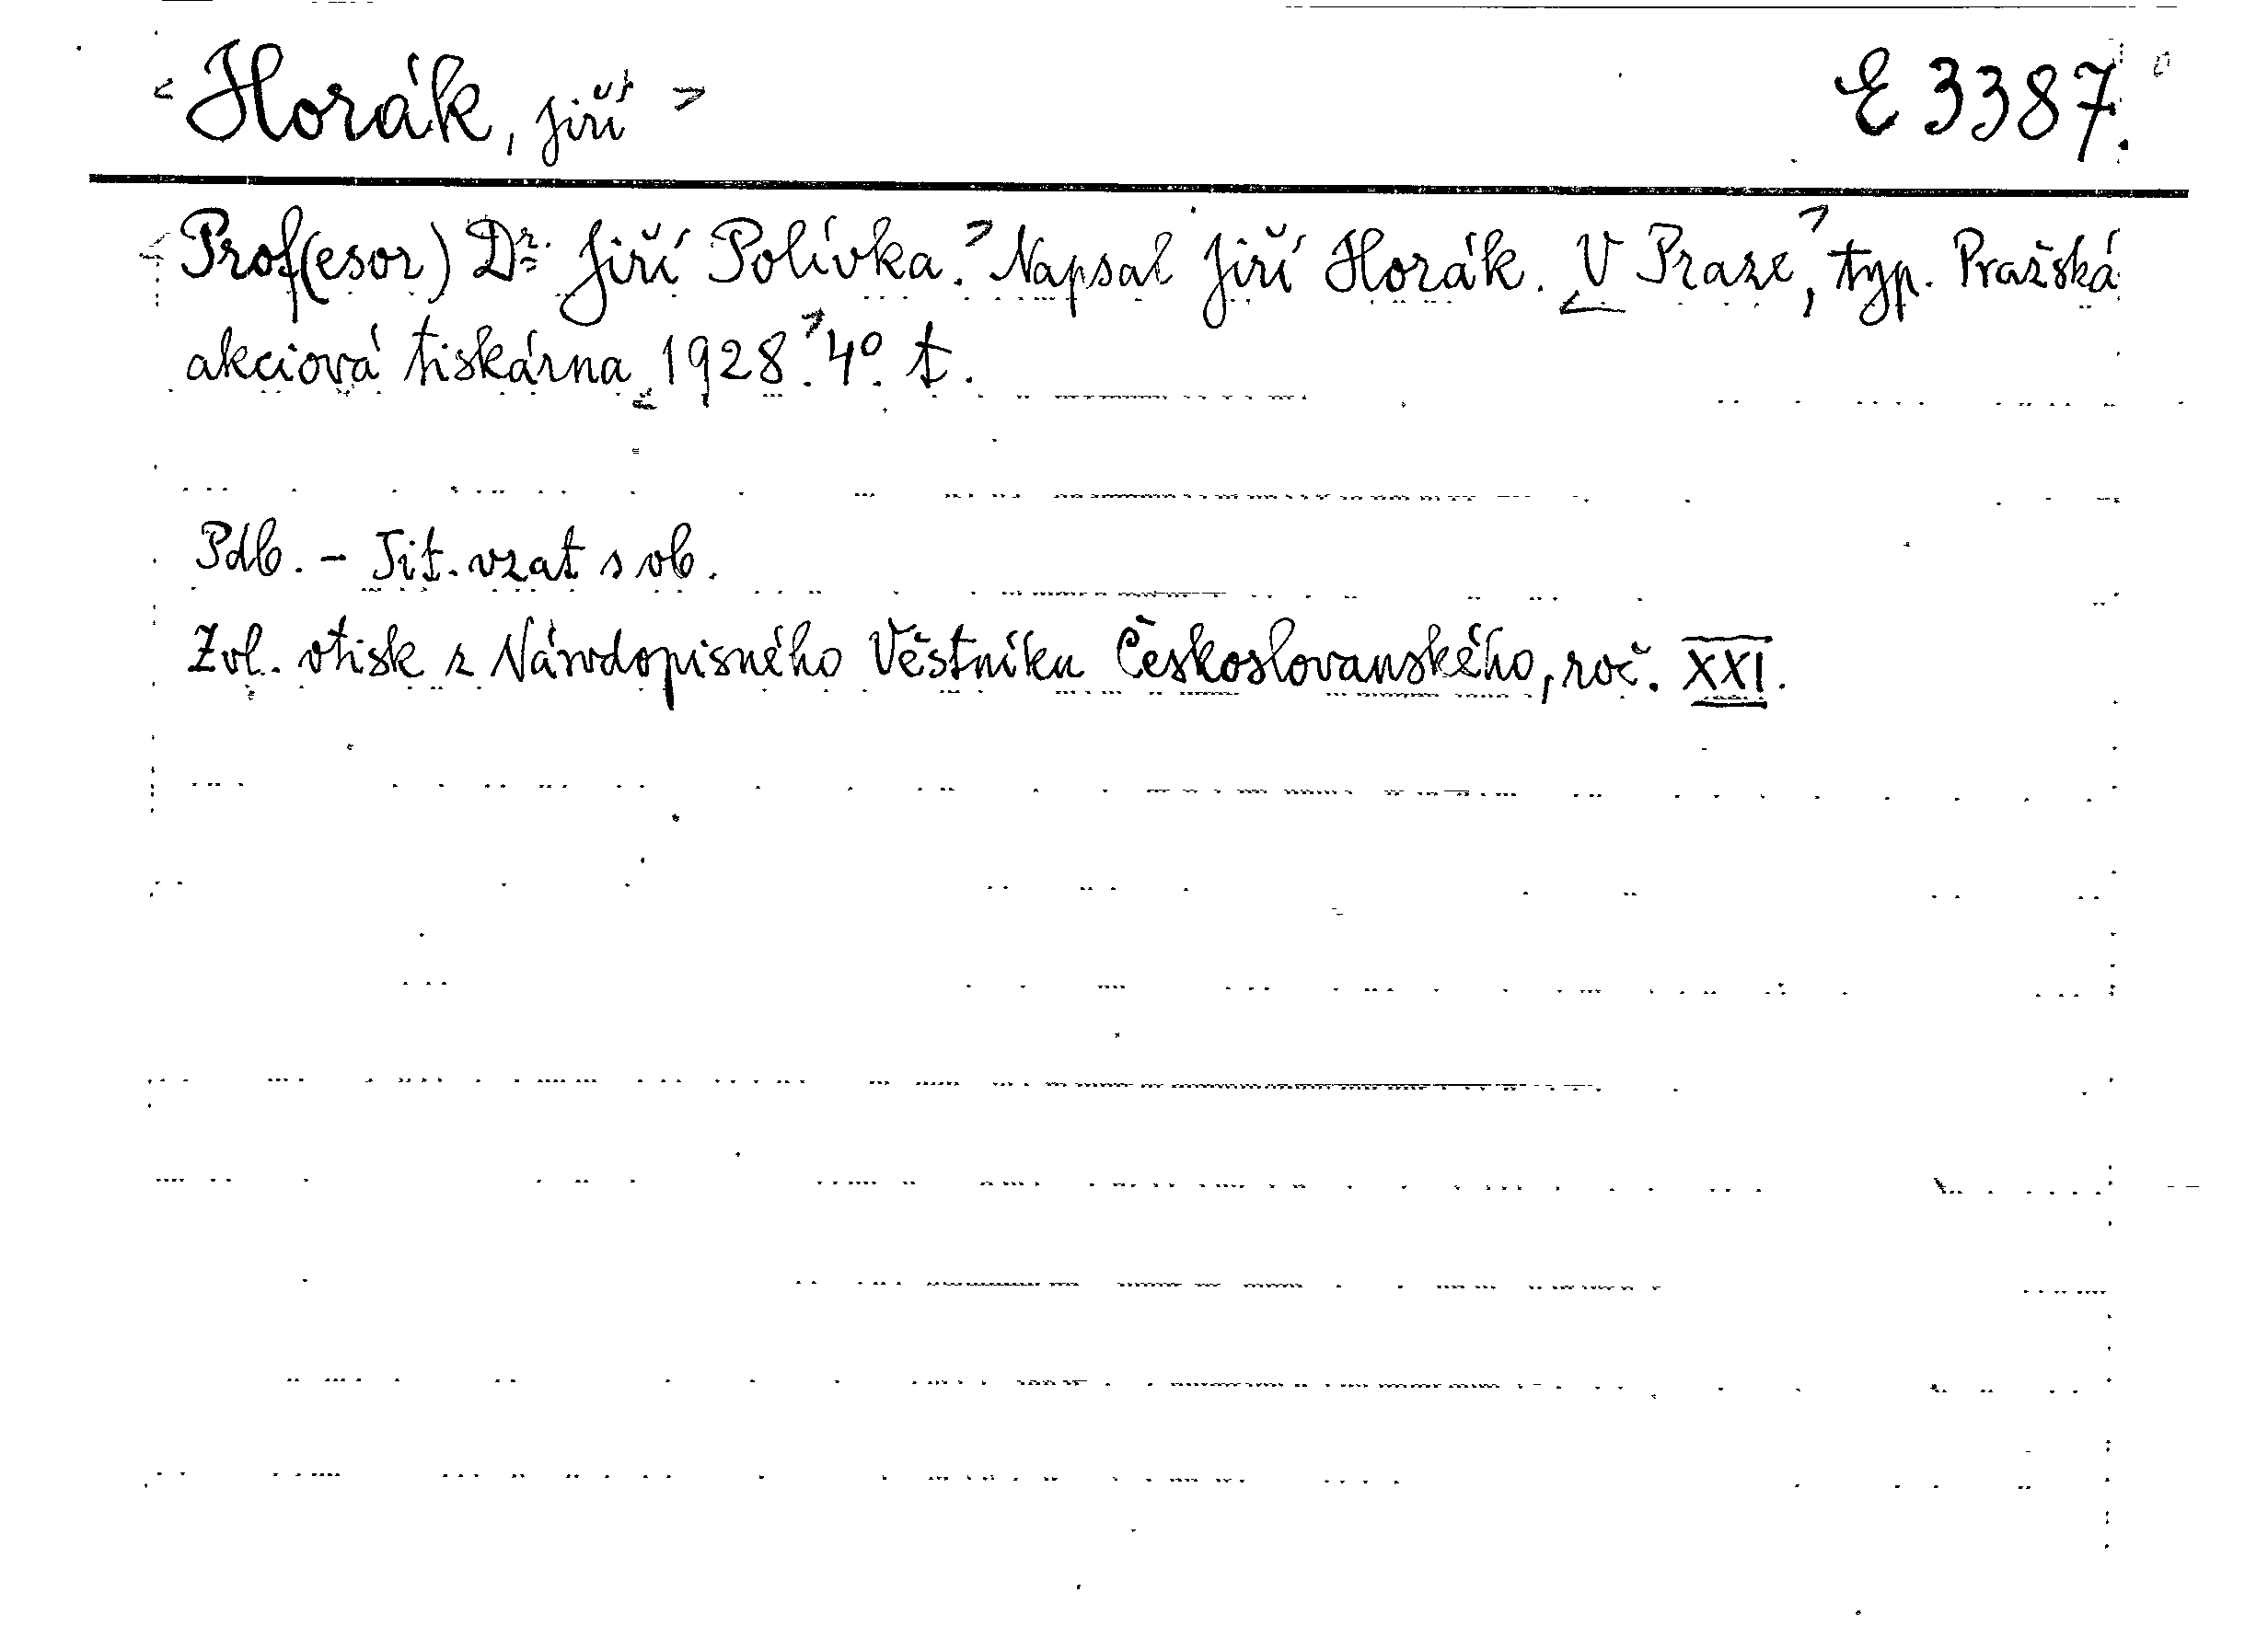 <Horák, Jiří> E 3387.
<Prof(esor) Dr. Jiří Polívka.> Napsal Jiří Horák. <V Praze>, typ. Pražská
akciová tiskárna <1928.> 4°. t.
Pdb. - Tit. vzat s ob.
Zvl. otisk z Národopisného Věstníku Českoslovanského, roč. XXI.